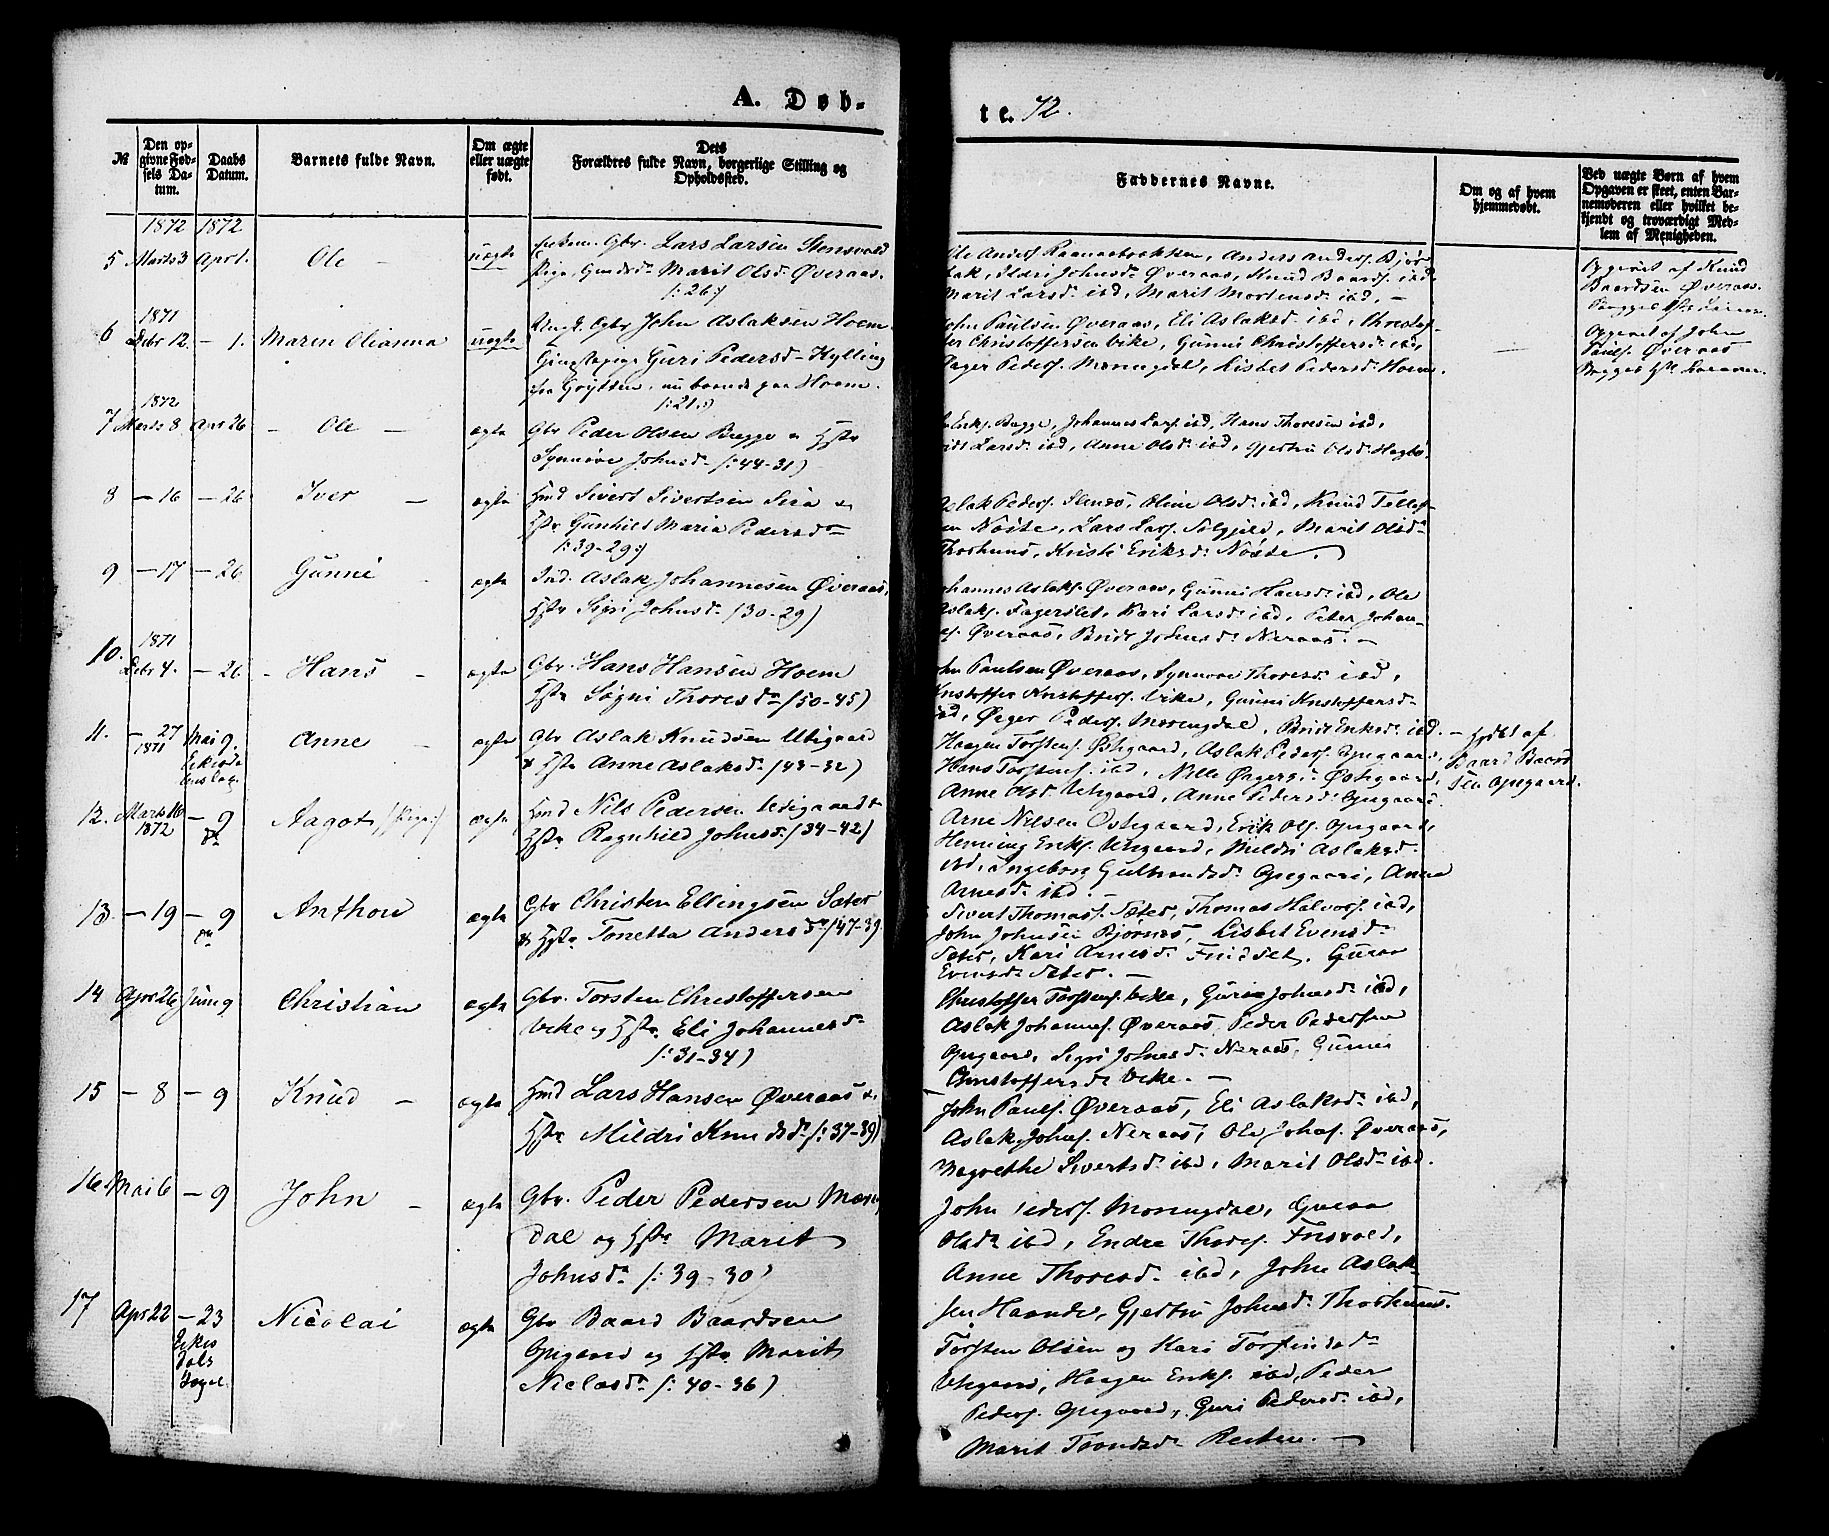 A. Døb-
te. 72.
№
Den op-
givne Fød-
sels Da-
tum.
Daabs
Datum.
Barnets fulde Navn.
Om ægte
eller uægte
født.
Dets
Forældres fulde Navn, borgerlige Stilling og
Opholdssted.
Faddernes Navne.
Om og af hvem
hjemmedøbt.
Ved uægte Børn af hvem
Opgaven er skeet, enten Bar-
nemoderen eller hvilket be-
kjendt og troværdigt Med-
lem af Menigheden.
1872 1872
5 Marts 3 Apr 1. Ole - uægte Gbr. Lars Larsen Stensvold
Pige, Marit Olsd. Øveraas.
/:26:/
Ole Anders. Anders Anders. Bjør-
Ildri Johnsd. Øveraas, Knud Baards. ibd.
Marit Larsd. ibd, Marit Mortensd. ibd, -
Opgivet af Knud
Baardsen Øveraas.
1871
6 Debr 12. - 1. Maren Olianna uægte Ungk. Gbr John Aslaksen Hoem
Guri Pedersd. Kylling
fra Grytten, nu boende paa Hoem.
/:21:/
John Paulsen Øveraas, Eli Aslaksd. ibd, Christof-
fer Christoffersen Vike, Gunni Christoffersd. ibd,
Øager Peders. Morengdal, Lisbet Pedersd. Hoem.
-
Opgivet af John
Pauls. Øveraas
1872
7 Marts 8. Apr 26 - Ole - ægte Gbr Peder Olsen Bugge & Hstr
Synnøve Johnsd. /:44-31/
Eriks. Bugge, Johannes Lars. ibd, Hans Thoresen ibd,
Larsd. ibd, Anne Olsd. ibd, Gjertru Olsd. Hagbø.
8 - 16 - 26 Iver - ægte Hmd Sivert Sivertsen Sira &
Hstr Gunhild Maria Pedersd.
/:39-29:/
Aslak Peders. Oline Olsd. ibd, Knud Tellef-
sen Nøste, Lars Lars. Marit Olsd.
Thorhuus, Kristi Eriksd. Nøste.
9 - 17 - 26 Gunni - ægte Ind. Aslak Johannesen Øveraas,
Hstr Sigri Johnsd. /30-29/
Johannes Aslaks. Øveraas, Gunni Hansd. ibd, Ole
Aslaks. Fagerslet, Kari Larsd. ibd, Peter Johan-
nes. Øveraas, Berit Johnsd. Neraas. -
1871
10. Debr 4. - 26. - Hans - ægte Gbr. Hans Hansen Hoem
Hstr Signi Thoresd. /50-45/
John Paulsen Øveraas, Synnøve Thoresd. ibd,
Kristoffer Kristoffers. Vike, Gunni Kristoffersd.
ibd, Øager Peders. Morengdal, Berit Eriksd. ibd.
11. - 27
1871
Mai 9.
Anne - ægte Gbr Aslak Knudsen Utigaard
& Hstr Anne Aslaksd. /43-32/
Haagen Torstens. Østigaard, Aslak Peders. Opigaard,
Hans Torstens. ibd, Nille Østigaard,
Anne Olsd. Utigaard, Anne Pedersd. Opigaard.
- Hjdbt af
Baard Baard-
sen Opigaard.
12. Marts 16
1872
- 9
Aagot, (Pige:) ægte Hmd Nils Pedersen Utigaard &
Hstr Ragnhild Johnsd. /34-42/
Arne Nilsen Østigaard, Erik Ols. Opigaard,
Henning Eriks. Utigaard, Mildri Aslaksd.
ibd, Ingeborg Opigaard, Anne
Arnesd. ibd -
13. - 19 - 9
Anthon ægte Gbr Christen Ellingsen Sæter
& Hstr Tonetta Andersd. /47-39
Sivert Thomas. Sæter, Thomas Halvors. ibd,
John Johnsen Bjørnes, Lisbet Evensd.
Sæter, Kari Arnesd. Guroe
Evensd. Sæter. -
14 Apr 26 Juni 9 Christian ægte Gbr. Torsten Christoffersen
Vike og Hstr Eli Johannesd.
/:31-34/
Christoffer Torstens. Vike, Guri Johnsd. ibd,
Aslak Johannes. Øveraas, Peder Pedersen
Opigaard, Sigri Johnsd. Neraas, Gunni
Christoffersd. Vike. -
15 - 8 - 9 Knud - ægte Hmd Lars Hansen Øveraas &
Hstr Mildri Knudsd. /:37-39/
John Pauls. Øveraas, Eli Aslaksd. ibd,
Aslak Johns. Neraas, Ole Johs. Øveraas,
Magrethe Sivertsd. ibd, Marit Olsd. ibd.
16 Mai 6 - 9 John - ægte Gbr. Peder Pedersen Moreng-
dal og Hstr Marit
Johnsd. /:39-30/
John Peders. Morengdal, Guroe
Olsd. ibd, Endre Thores. Frisvold,
Anne Thoresd. ibd, John Aslak-
sen Gjertru Johnsd. Thorhuus.
17 Apr 22 - 23
Nicolai ægte Gbr Baard Baardsen
Opigaard og Hstr Marit
Niclasd. /:40-36/
Torsten Olsen og Kari Torfinsd.
Utigaard, Haagen Eriks. ibd, Peder
Peders. Opigaard, Guri Pedersd. ibd,
Marit Trondsd. -